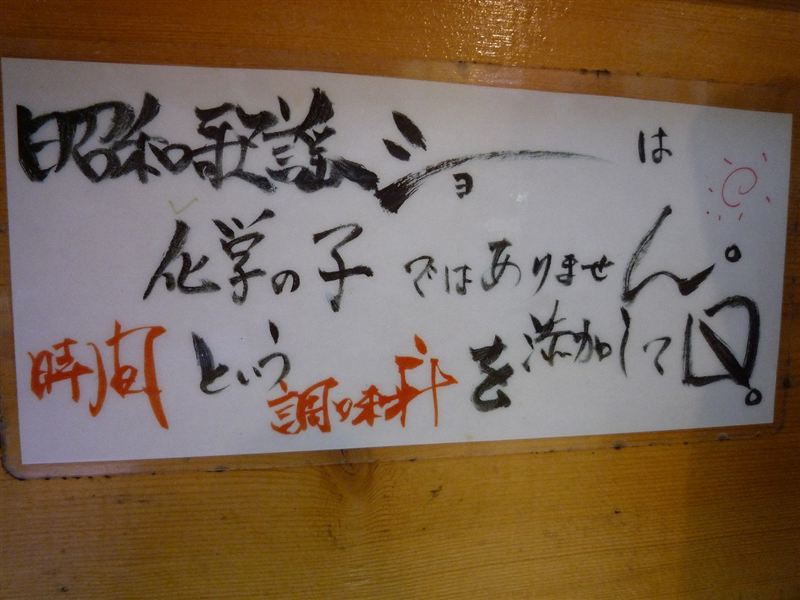 昭和歌謡ショーは
化学の子ではありません。
時間という調味料を添加して